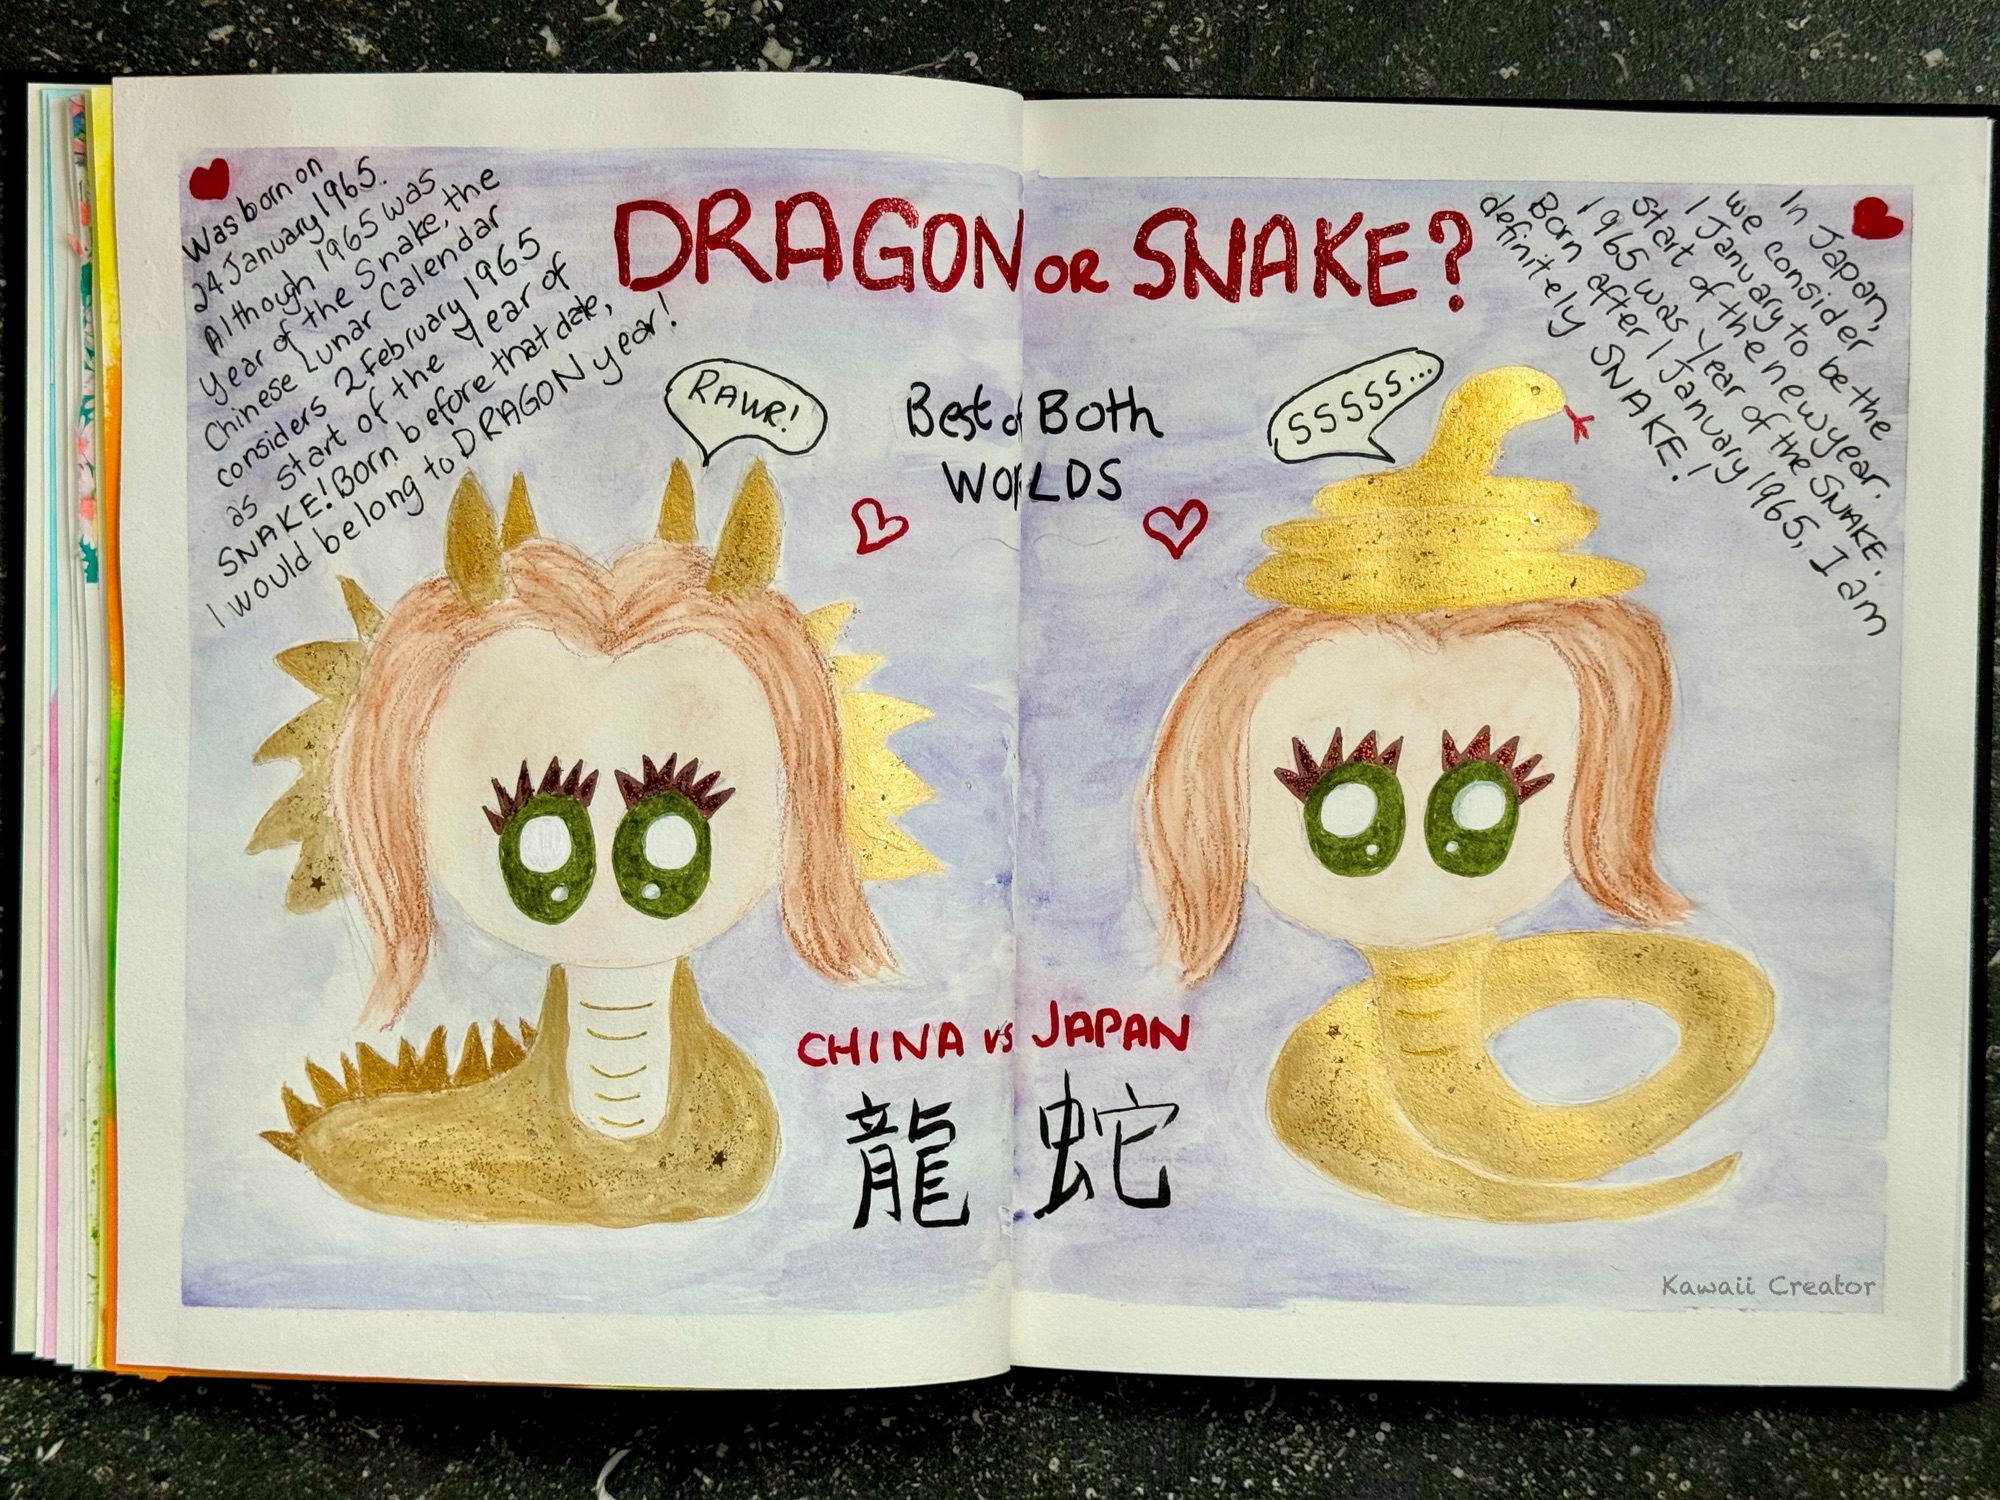 Was born on
24 January 1965.
Although 1965 was
Year of the Snake, the
Chinese Lunar Calendar
considers 2 February 1965
as start of the Year of
SNAKE! Born b before that date,
I would belong to DRAGON year!
DRAGON OR SNAKE?
In Japan,
we consider
1 January to be the
start of the new year.
1965 was Year of the SNAKE.
Born after 1 January 1965, I am
definitely SNAKE!
RAWR!
Best of Both
WORLDS
SSSSS...
CHINA vs JAPAN
龍 蛇
Kawaii Creator